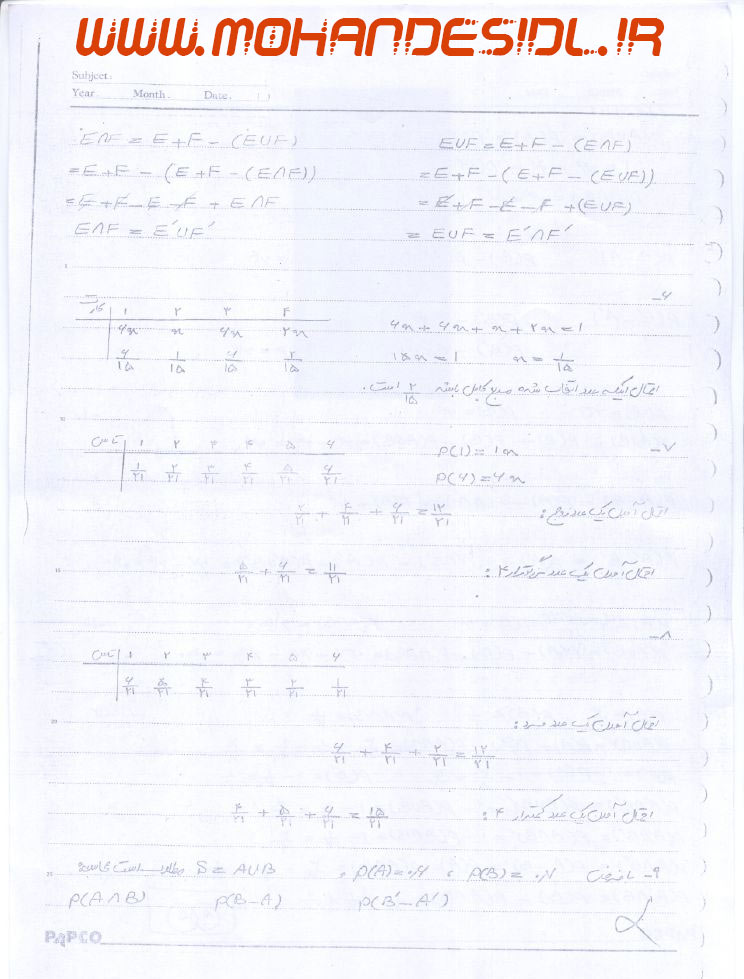 WWW.MOHANDESIDL.IR
Subject.
Year. Month. Date. ( )
E∩F = E+F − (E∪F)
= E+F − (E+F − (E∩F))
= E+F − E − F + E∩F
E∩F = E′∪F′
E∪F = E+F − (E∩F)
= E+F − (E+F − (E∪F))
= E+F − E − F + (E∪F)
= E∪F = E′∩F′
۶−
کارت ۱ ۲ ۳ ۴
۶n n ۶n ۲n
۶/۱۵ ۱/۱۵ ۶/۱۵ ۲/۱۵
۶n + ۶n + n + ۲n = ۱
۱۵n = ۱ n = ۱/۱۵
احتمال اینکه عدد انتخاب شده مربع کامل باشد ۲/۱۵ است.
۷−
تاس ۱ ۲ ۳ ۴ ۵ ۶
۱/۲۱ ۲/۲۱ ۳/۲۱ ۴/۲۱ ۵/۲۱ ۶/۲۱
P(۱) = ۱n
P(۶) = ۶n
احتمال آمدن یک عدد زوج:
۲/۲۱ + ۴/۲۱ + ۶/۲۱ = ۱۲/۲۱
احتمال آمدن یک عدد بزرگتر از ۴:
۵/۲۱ + ۶/۲۱ = ۱۱/۲۱
۸−
تاس ۱ ۲ ۳ ۴ ۵ ۶
۶/۲۱ ۵/۲۱ ۴/۲۱ ۳/۲۱ ۲/۲۱ ۱/۲۱
احتمال آمدن یک عدد فرد:
۶/۲۱ + ۴/۲۱ + ۲/۲۱ = ۱۲/۲۱
احتمال آمدن یک عدد کمتر از ۴:
۴/۲۱ + ۵/۲۱ + ۶/۲۱ = ۱۵/۲۱
۹− با فرض P(B) = ۰.۷ ، P(A) = ۰.۶ ، S = A∪B مطلوب است محاسبه:
P(A∩B) P(B−A) P(B′−A′)
PAPCO